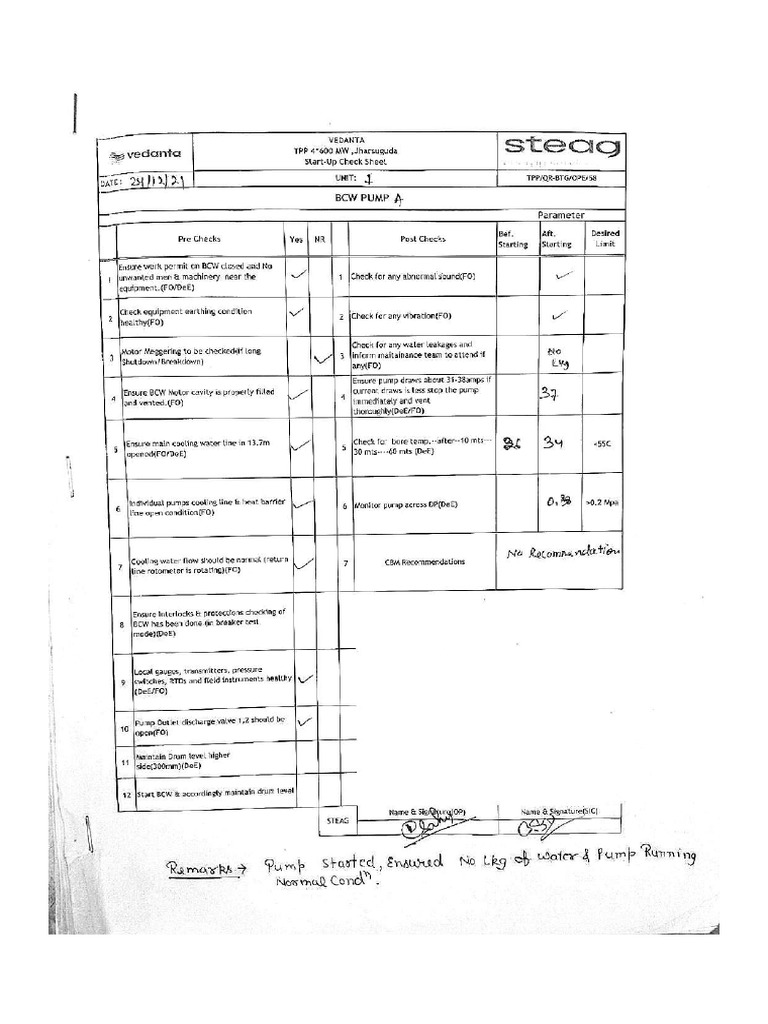 VEDANTA
TPP 4*600 MW ,Jharsuguda
Start-Up Check Sheet
vedanta
steag
DATE:
UNIT: 1
TPP/QR-BTG/OPE/58
BCW PUMP A
Parameter
Pre Checks Yes NR Post Checks Bef. Starting Aft. Starting Desired Limit
1 Ensure work permit on BCW closed and No unwanted men & machinery near the equipment.(FO/DeE) ✓ 1 Check for any abnormal sound(FO) ✓
2 Check equipment earthing condition healthy(FO) ✓ 2 Check for any vibration(FO) ✓
3 Motor Meggering to be checked(if long Shutdown/Breakdown) ✓ 3 Check for any water leakages and inform maitainance team to attend if any(FO) No Lkg
4 Ensure BCW Motor cavity is properly filled and vented.(FO) ✓ 4 Ensure pump draws about 31-38amps if current draws is less stop the pump immediately and vent thoroughly(DeE/FO) 37
5 Ensure main cooling water line in 13.7m opened(FO/DeE) ✓ 5 Check for bore temp.--after--10 mts---30 mts----60 mts (DeE) 34 <55C
6 Individual pumps cooling line & heat barrier line open condition(FO) ✓ 6 Monitor pump across DP(DeE) >0.2 Mpa
7 Cooling water flow should be normal (return line rotometer is rotating)(FO) ✓ 7 CBM Recommendations No Recommendation
8 Ensure interlocks & protections checking of BCW has been done.(in breaker test mode)(DeE)
9 Local gauges, transmitters, pressure switches, RTDs and field instruments healthy (DeE/FO) ✓
10 Pump Outlet discharge valve 1,2 should be open(FO) ✓
11 Maintain Drum level higher side(300mm)(DeE)
12 Start BCW & accordingly maintain drum level
STEAG Name & Signature(OP) Name & Signature(SIC)
Remarks → Pump Started, Ensured No Lkg of Water & Pump Running
Normal Condn.